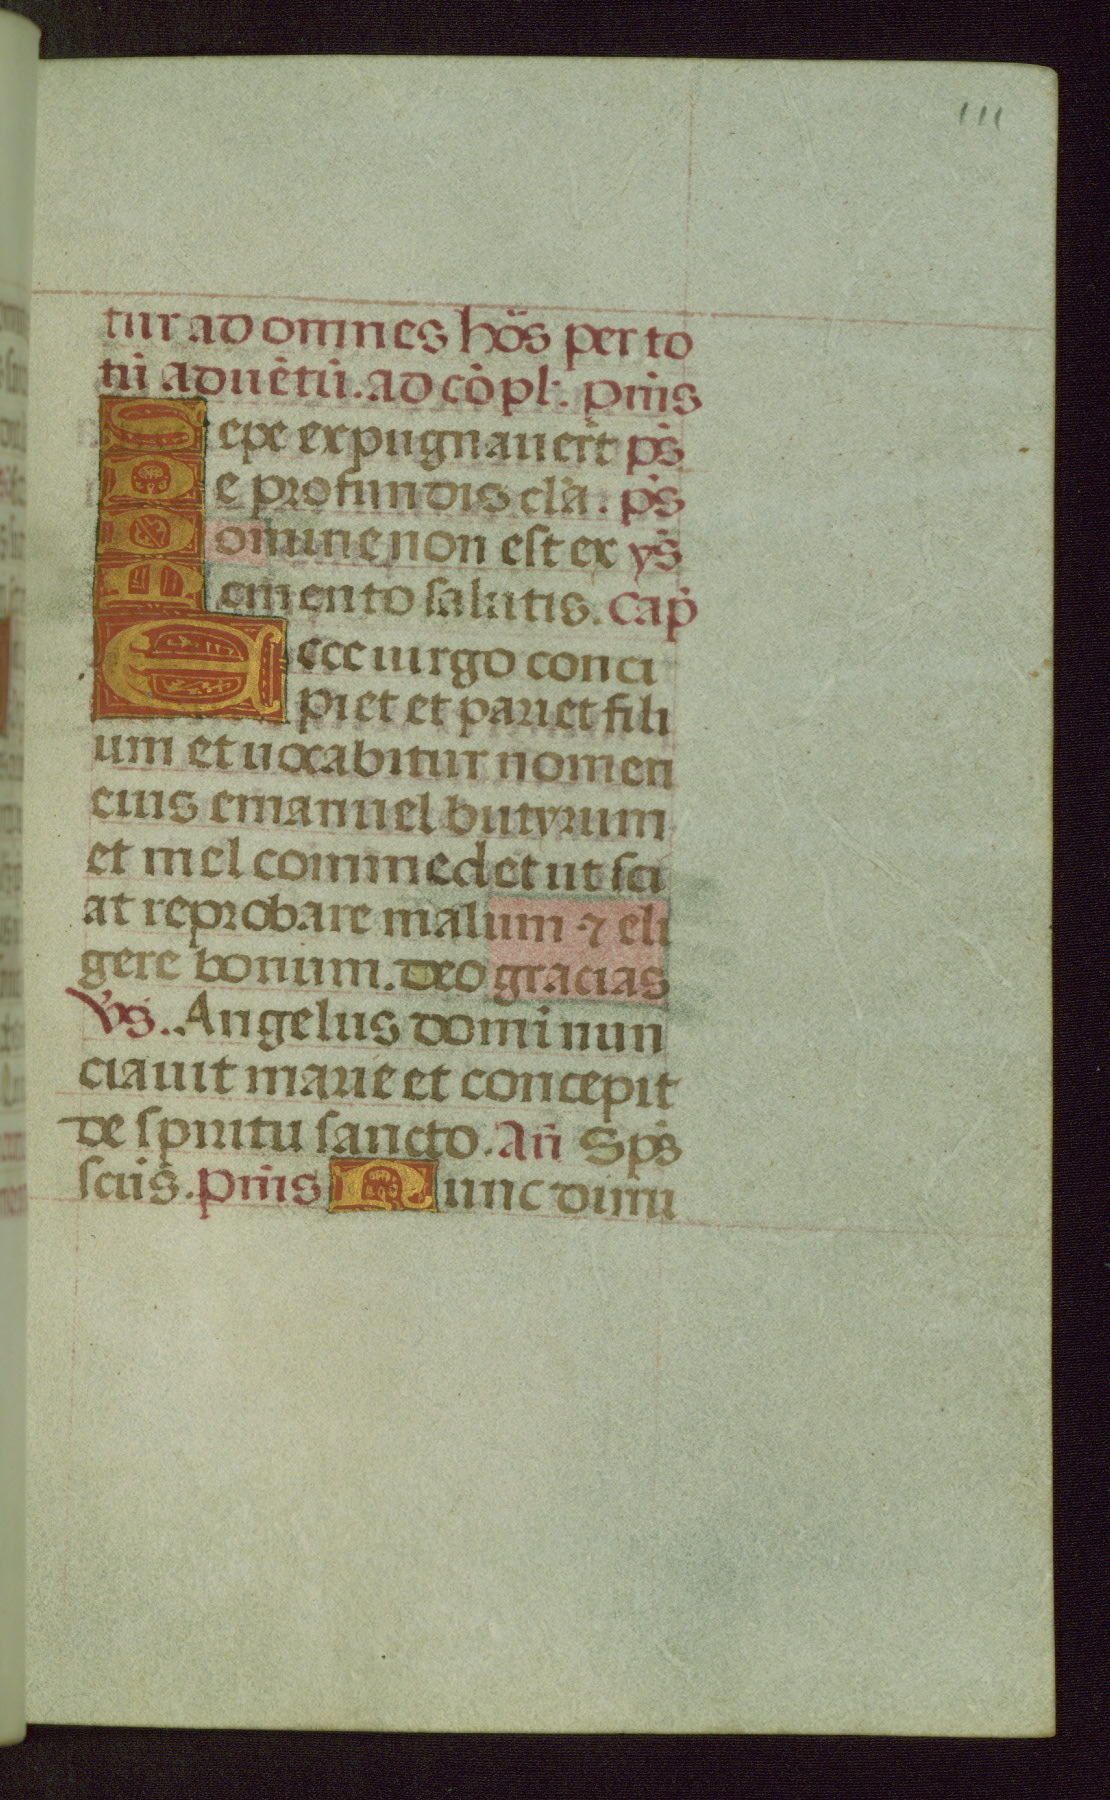 111
tur ad omnes hōs per to
tū aduētū. ad cōpl. pm̄s
Sepe expugnauer̄t ps̄
De profundis cla̅. ps̄
Domine non est ex ys̄
Memento salutis. Cap̄
Ecce uirgo conci
piet et pariet fili
um et uocabitur nomen
eius emanuel butyrum
et mel commedet ut sci
at reprobare malum ⁊ eli
gere bonum. deo gracias
Vs̄. Angelus domi nun
ciauit marie et concepit
de spiritu sancto. An̄ Sps̄
scūs. pm̄s Nunc dimi